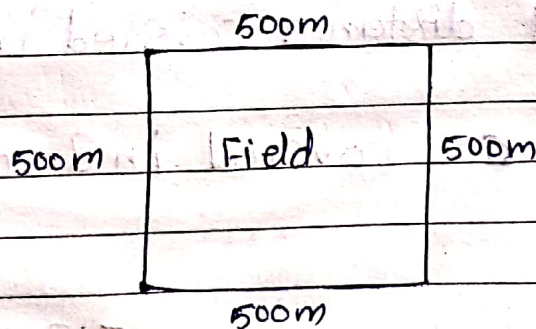 500m
500m Field 500m
500m